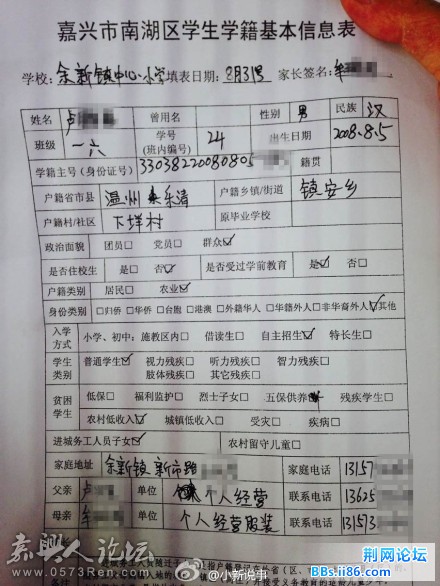 嘉兴市南湖区学生学籍基本信息表
学校：余新镇中心小学 填表日期：8月31号 家长签名：牟
姓名 卢 曾用名 性别 男 民族 汉
班级 一六 学号（班内编号） 24 出生日期 2008.8.5
学籍主号（身份证号） 33038220080805 籍贯
户籍省市县 温州 乐清 户籍乡镇/街道 镇安乡
户籍村/社区 下垟村 原毕业学校
政治面貌 团员□ 党员□ 群众☑
是否住校生 是□ 否☑ 是否受过学前教育 是☑ 否□
户籍类别 居民□ 农业☑
身份类别 □归侨 □华侨 □台胞 □港澳 □外籍华人 □华籍外人 □非华裔外人 ☑其他
入学方式 小学、初中：施教区内□ 借读生□ 自主招生☑ 特长生□
学生类别 普通学生☑ 视力残疾□ 听力残疾□ 智力残疾□
肢体残疾□ 其它残疾□
贫困学生 低保□ 福利监护□ 烈士子女□ 五保供养 残疾学生□
农村低收入☑ 城镇低收入□ 受灾□ 疾病□
进城务工人员子女☑ 农村留守儿童□
家庭地址 余新镇 新市路 家庭电话 13157
父亲 卢 单位 个人经营 联系电话 13625
母亲 牟 单位 个人经营服装 联系电话 13573
素聊人论坛
www.0573Ren.com
@小新说事
荆网论坛
BBs.ii86.com